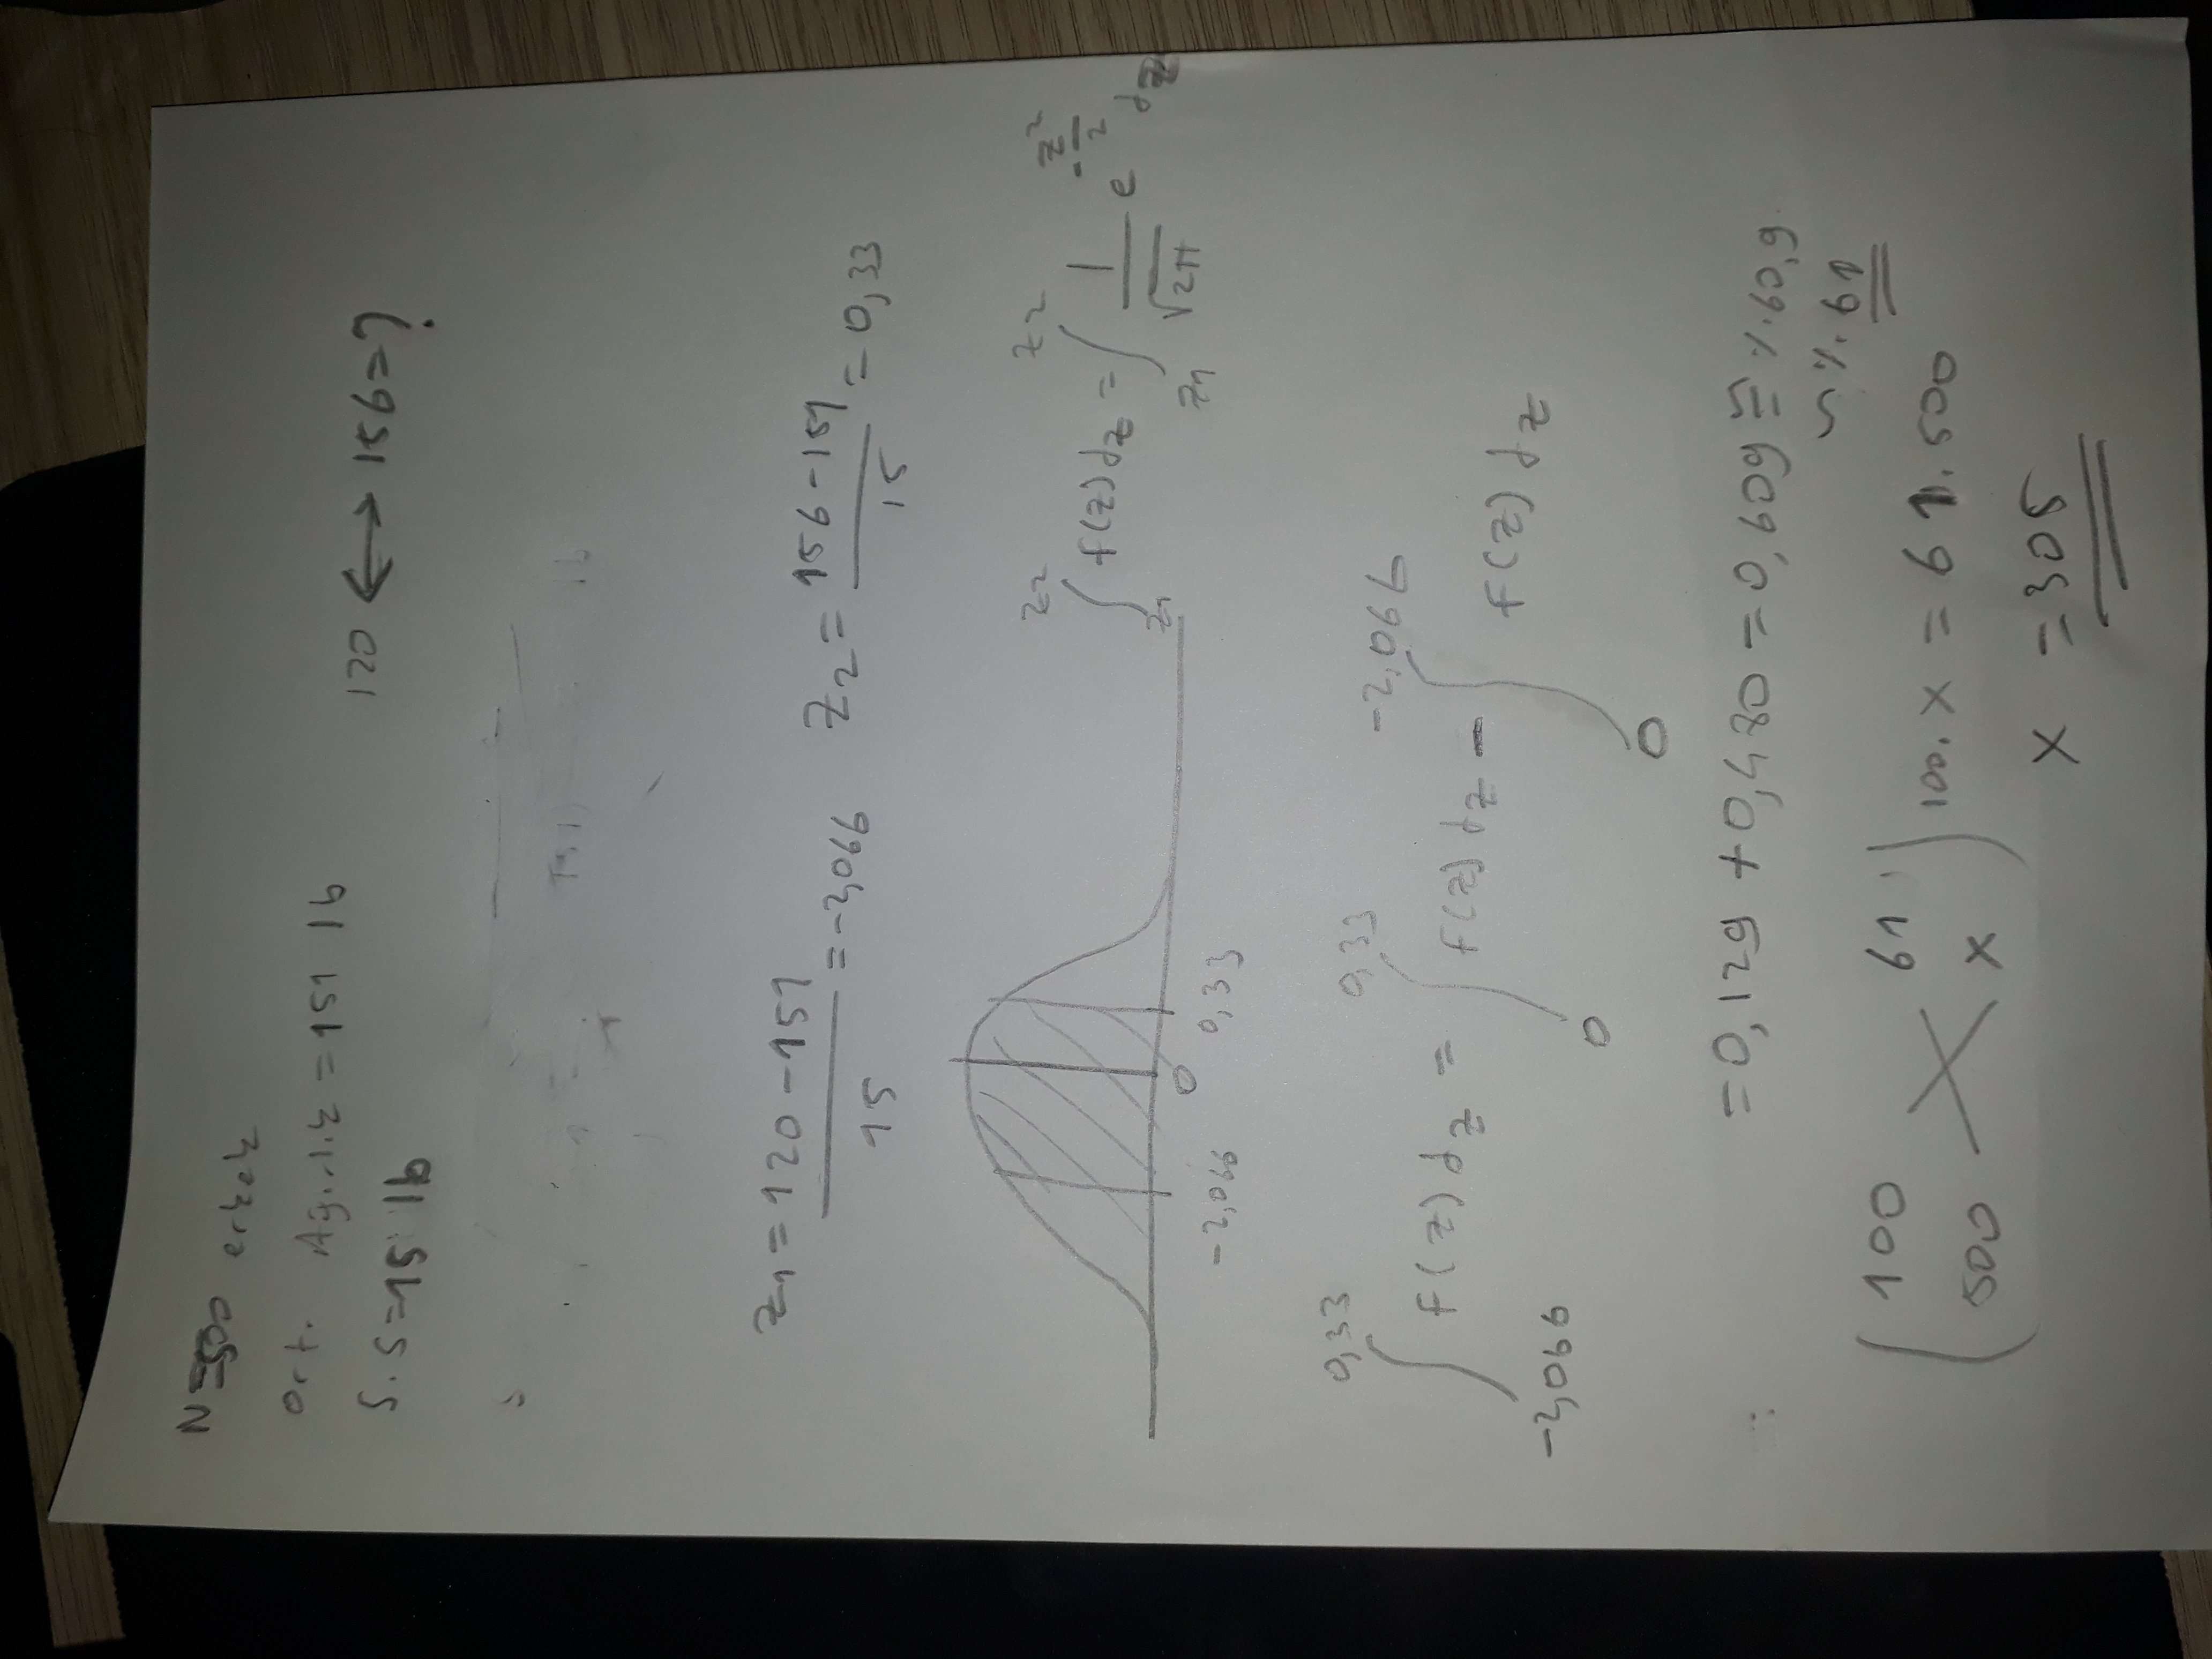 N=500 erkek
Ort. Ağırlık = 151 lb
S.S=15 lb
120 ↔ 156=?
Z₁ = (120 - 151)/15 = -2,066
Z₂ = (156 - 151)/15 = 0,33
-2,066 0 0,33
∫_{Z₁}^{Z₂} f(z) dz = ∫_{Z₁}^{Z₂} 1/√2π e^{-z²/2} dz
∫_{-2,066}^{0,33} f(z) dz = ∫_{0}^{0,33} f(z) dz - ∫_{0}^{-2,066} f(z) dz
= 0,129 + 0,480 = 0,609 ≅ %60,9
~ %61
100 61
500 x
100. x = 61. 500
x = 305